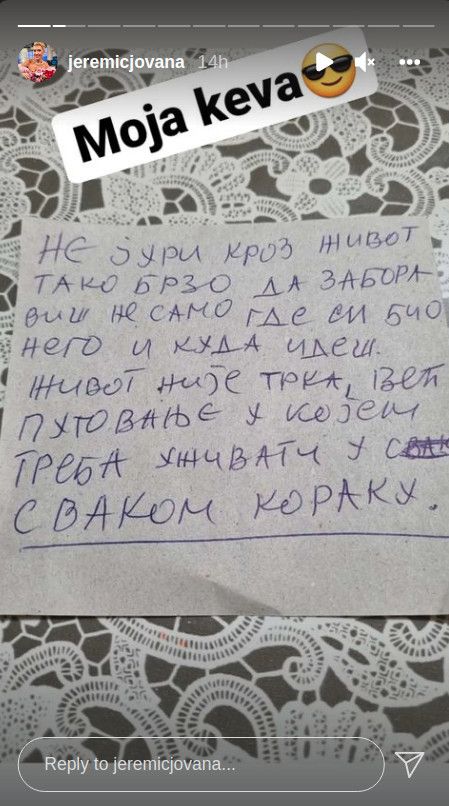 jeremicjovana 14h
Moja keva😎
НЕ ЈУРИ КРОЗ ЖИВОТ
ТАКО БРЗО ДА ЗАБОРА-
ВИШ НЕ САМО ГДЕ СИ БИО
НЕГО И КУДА ИДЕШ.
ЖИВОТ НИЈЕ ТРКА, ВЕЋ
ПУТОВАЊЕ У КОЈЕМ
ТРЕБА УЖИВАТИ У
СВАКОМ КОРАКУ.
Reply to jeremicjovana...